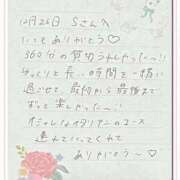 12月26日 Sさんへ
いつもありがとう♡
360分の貸切うれしかった〜!!
ゆっくりと長い時間を一緒に
過ごせて、最初から最後まで
ずっと楽しかった〜!
オシャレなイタリアンのコース
連れていってくれて
ありがとう〜♡